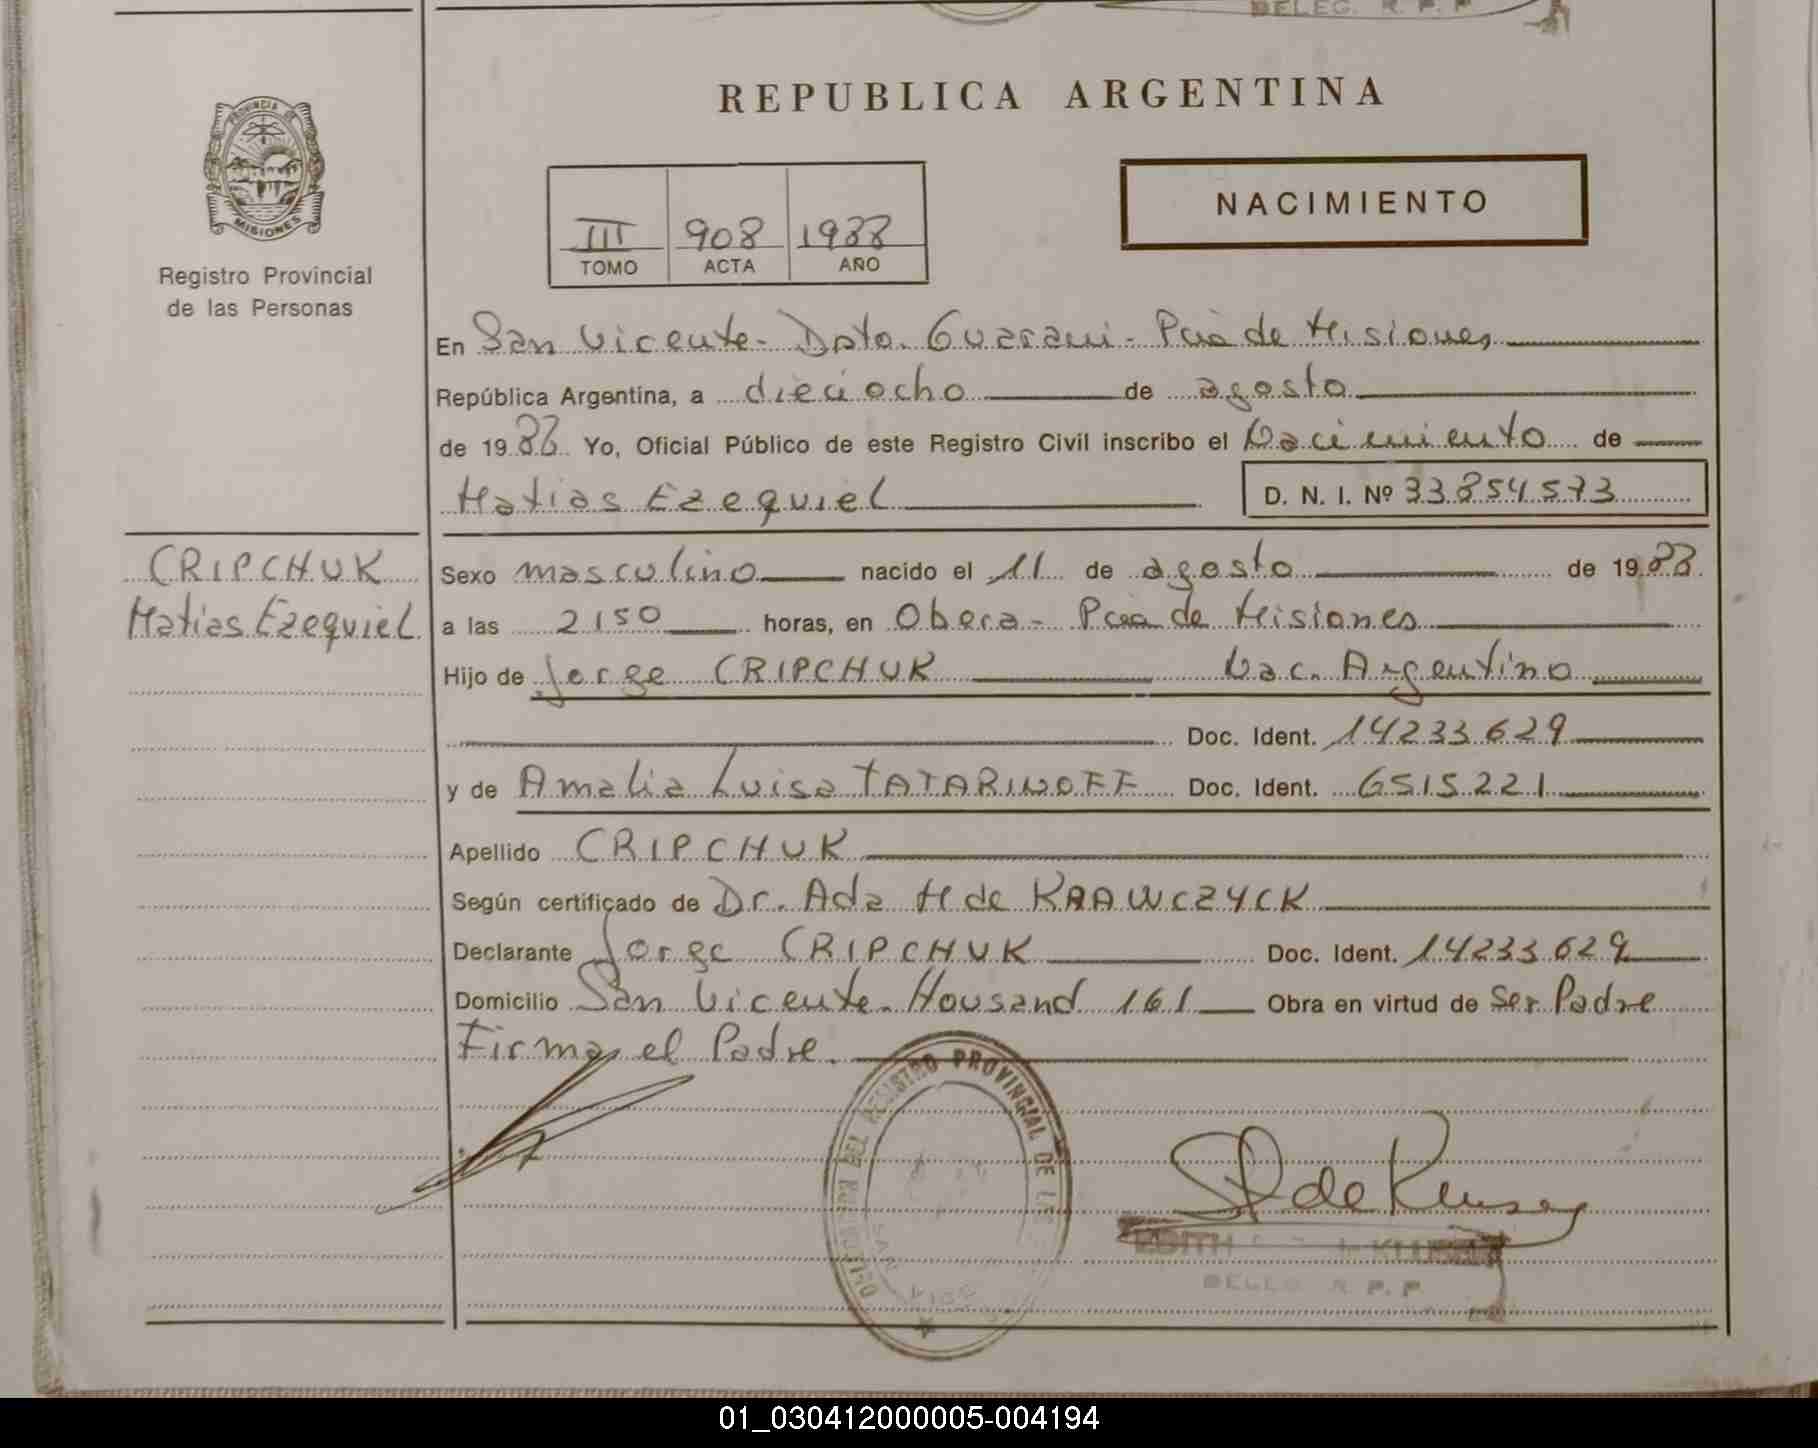 DELEG. R. P. P
REPUBLICA ARGENTINA
PROVINCIA DE
MISIONES
Registro Provincial
de las Personas
NACIMIENTO
III 908 1988
TOMO ACTA AÑO
En San Vicente - Dpto. Guarani - Pcia de Misiones
República Argentina, a dieciocho de agosto
de 1988 Yo, Oficial Público de este Registro Civil inscribo el Nacimiento de
Matias Ezequiel D. N. I. Nº 33854573
CRIPCHUK
Matias Ezequiel
Sexo masculino nacido el 11 de agosto de 1988
a las 2150 horas, en Obera - Pcia de Misiones
Hijo de Jorge CRIPCHUK Nac. Argentino
Doc. Ident. 14233629
y de Amalia Luisa TATARINOFF Doc. Ident. 6515221
Apellido CRIPCHUK
Según certificado de Dr. Ada H de KRAWCZYCK
Declarante Jorge CRIPCHUK Doc. Ident. 14233629
Domicilio San Vicente - Housand 161 Obra en virtud de Ser Padre
Firma el Padre.
REGISTRO PROVINCIAL DE LAS
SAN VICE
EDITH
R. P. P
01_030412000005-004194